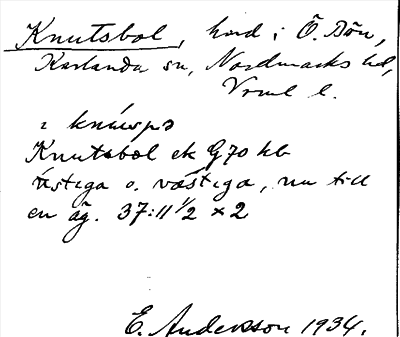 Knutsbol, hmd i Ö. Bön,
Karlanda sn, Nordmarks hd,
Vrml l.
Knutsbol ek G70 hb
östiga o. västiga, nu till
en äg. 37:11 1/2 × 2
E. Andersson 1934.